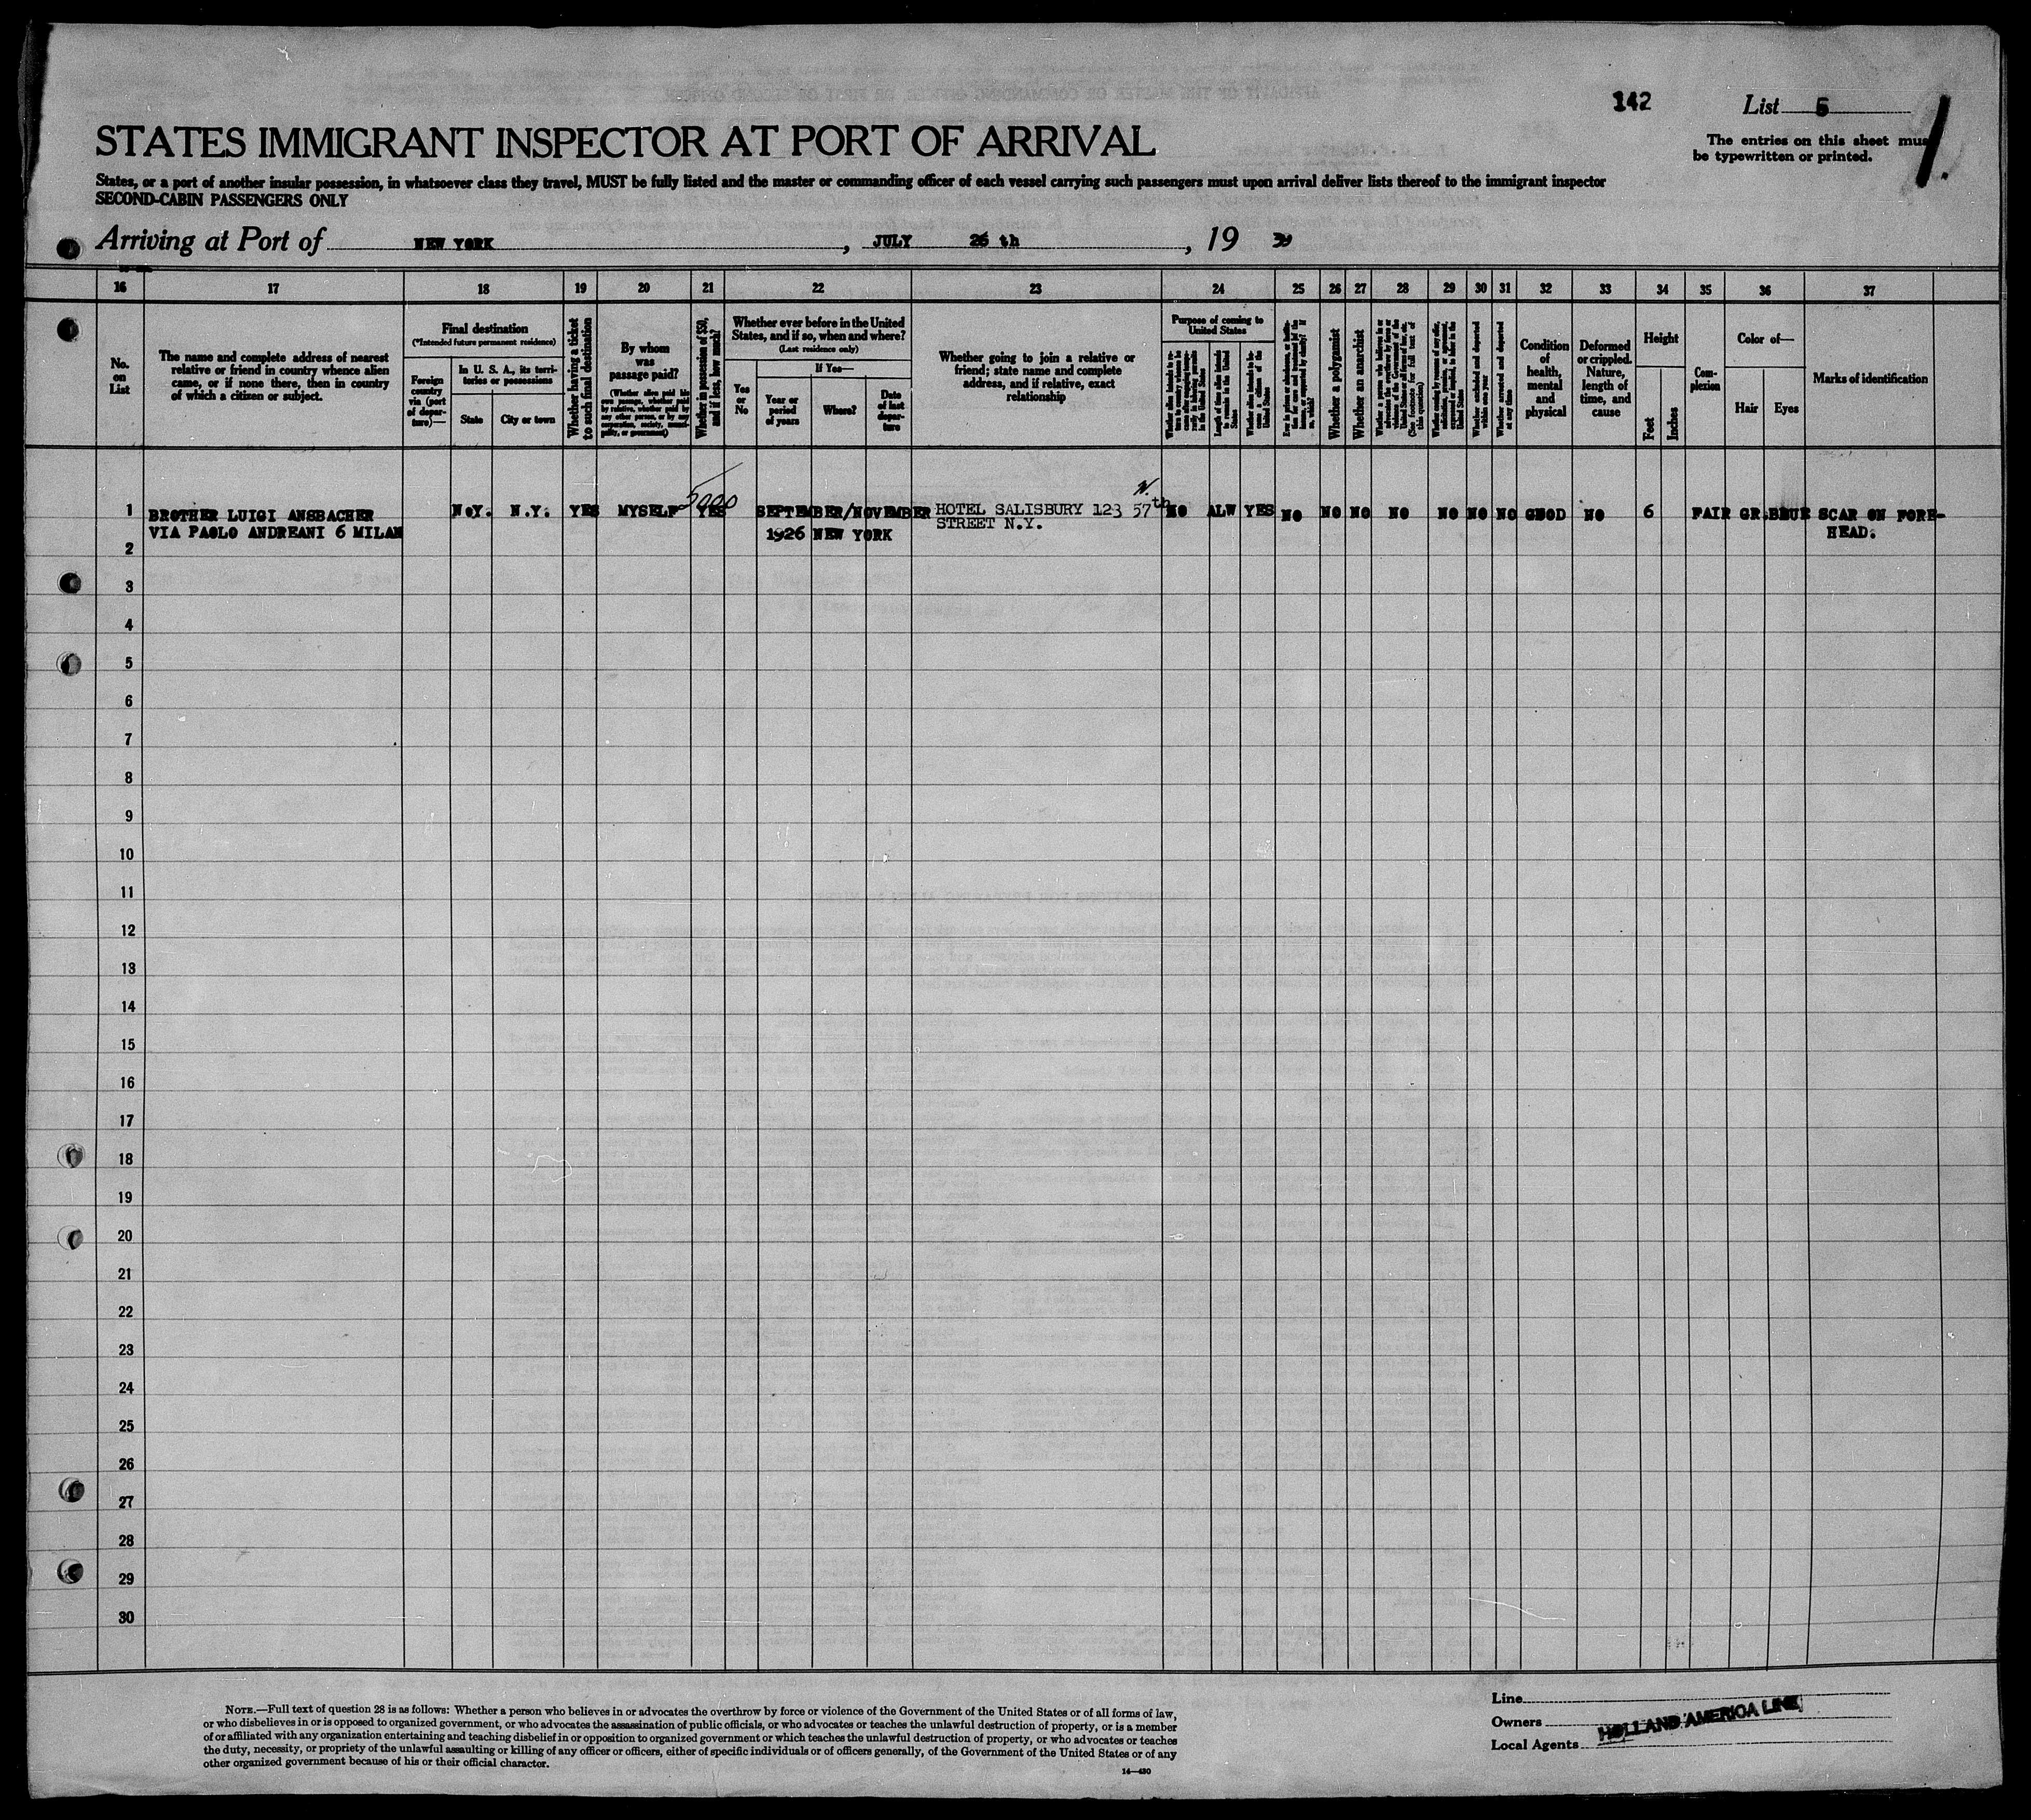 142
List 5
1.
STATES IMMIGRANT INSPECTOR AT PORT OF ARRIVAL
The entries on this sheet must
be typewritten or printed.
States, or a port of another insular possession, in whatsoever class they travel, MUST be fully listed and the master or commanding officer of each vessel carrying such passengers must upon arrival deliver lists thereof to the immigrant inspector
SECOND-CABIN PASSENGERS ONLY
Arriving at Port of NEW YORK, JULY 26 th, 19 39
16 17 18 19 20 21 22 23 24 25 26 27 28 29 30 31 32 33 34 35 36 37
No. on List
The name and complete address of nearest
relative or friend in country whence alien
came, or if none there, then in country
of which a citizen or subject.
Final destination
(*Intended future permanent residence)
Foreign country via (port of departure)—
In U. S. A., its territories or possessions
State
City or town
Whether having a ticket to such final destination
By whom was passage paid?
(Whether alien paid his own passage, whether paid by relative, whether paid by any other person, or by any corporation, society, municipality, or government)
Whether in possession of $50, and if less, how much?
Whether ever before in the United
States, and if so, when and where?
(Last residence only)
Yes or No
If Yes—
Year or period of years
Where?
Date of last departure
Whether going to join a relative or
friend; state name and complete
address, and if relative, exact
relationship
Purpose of coming to United States
Length of time alien intends to remain in the United States
Whether alien intends to become a citizen of the United States
Whether a polygamist
Whether an anarchist
Whether excluded and deported within one year
Whether arrested and deported at any time
Condition of health, mental and physical
Deformed or crippled. Nature, length of time, and cause
Height
Feet
Inches
Complexion
Color of—
Hair
Eyes
Marks of identification
1 BROTHER LUIGI ANSBACHER N.Y. N.Y. YES MYSELF YES 5000 SEPTEMBER/NOVEMBER HOTEL SALISBURY 123 W. 57th NO ALW YES NO NO NO NO NO NO NO GOOD NO 6 FAIR GR. BLUE SCAR ON FORE-
VIA PAOLO ANDREANI 6 MILAN 1926 NEW YORK STREET N.Y. HEAD.
2
3
4
5
6
7
8
9
10
11
12
13
14
15
16
17
18
19
20
21
22
23
24
25
26
27
28
29
30
NOTE.—Full text of question 28 is as follows: Whether a person who believes in or advocates the overthrow by force or violence of the Government of the United States or of all forms of law,
or who disbelieves in or is opposed to organized government, or who advocates the assassination of public officials, or who advocates or teaches the unlawful destruction of property, or is a member
of or affiliated with any organization entertaining and teaching disbelief in or opposition to organized government or which teaches the unlawful destruction of property, or who advocates or teaches
the duty, necessity, or propriety of the unlawful assaulting or killing of any officer or officers, either of specific individuals or of officers generally, of the Government of the United States or of any
other organized government because of his or their official character.
14—480
Line
Owners
HOLLAND AMERICA LINE
Local Agents